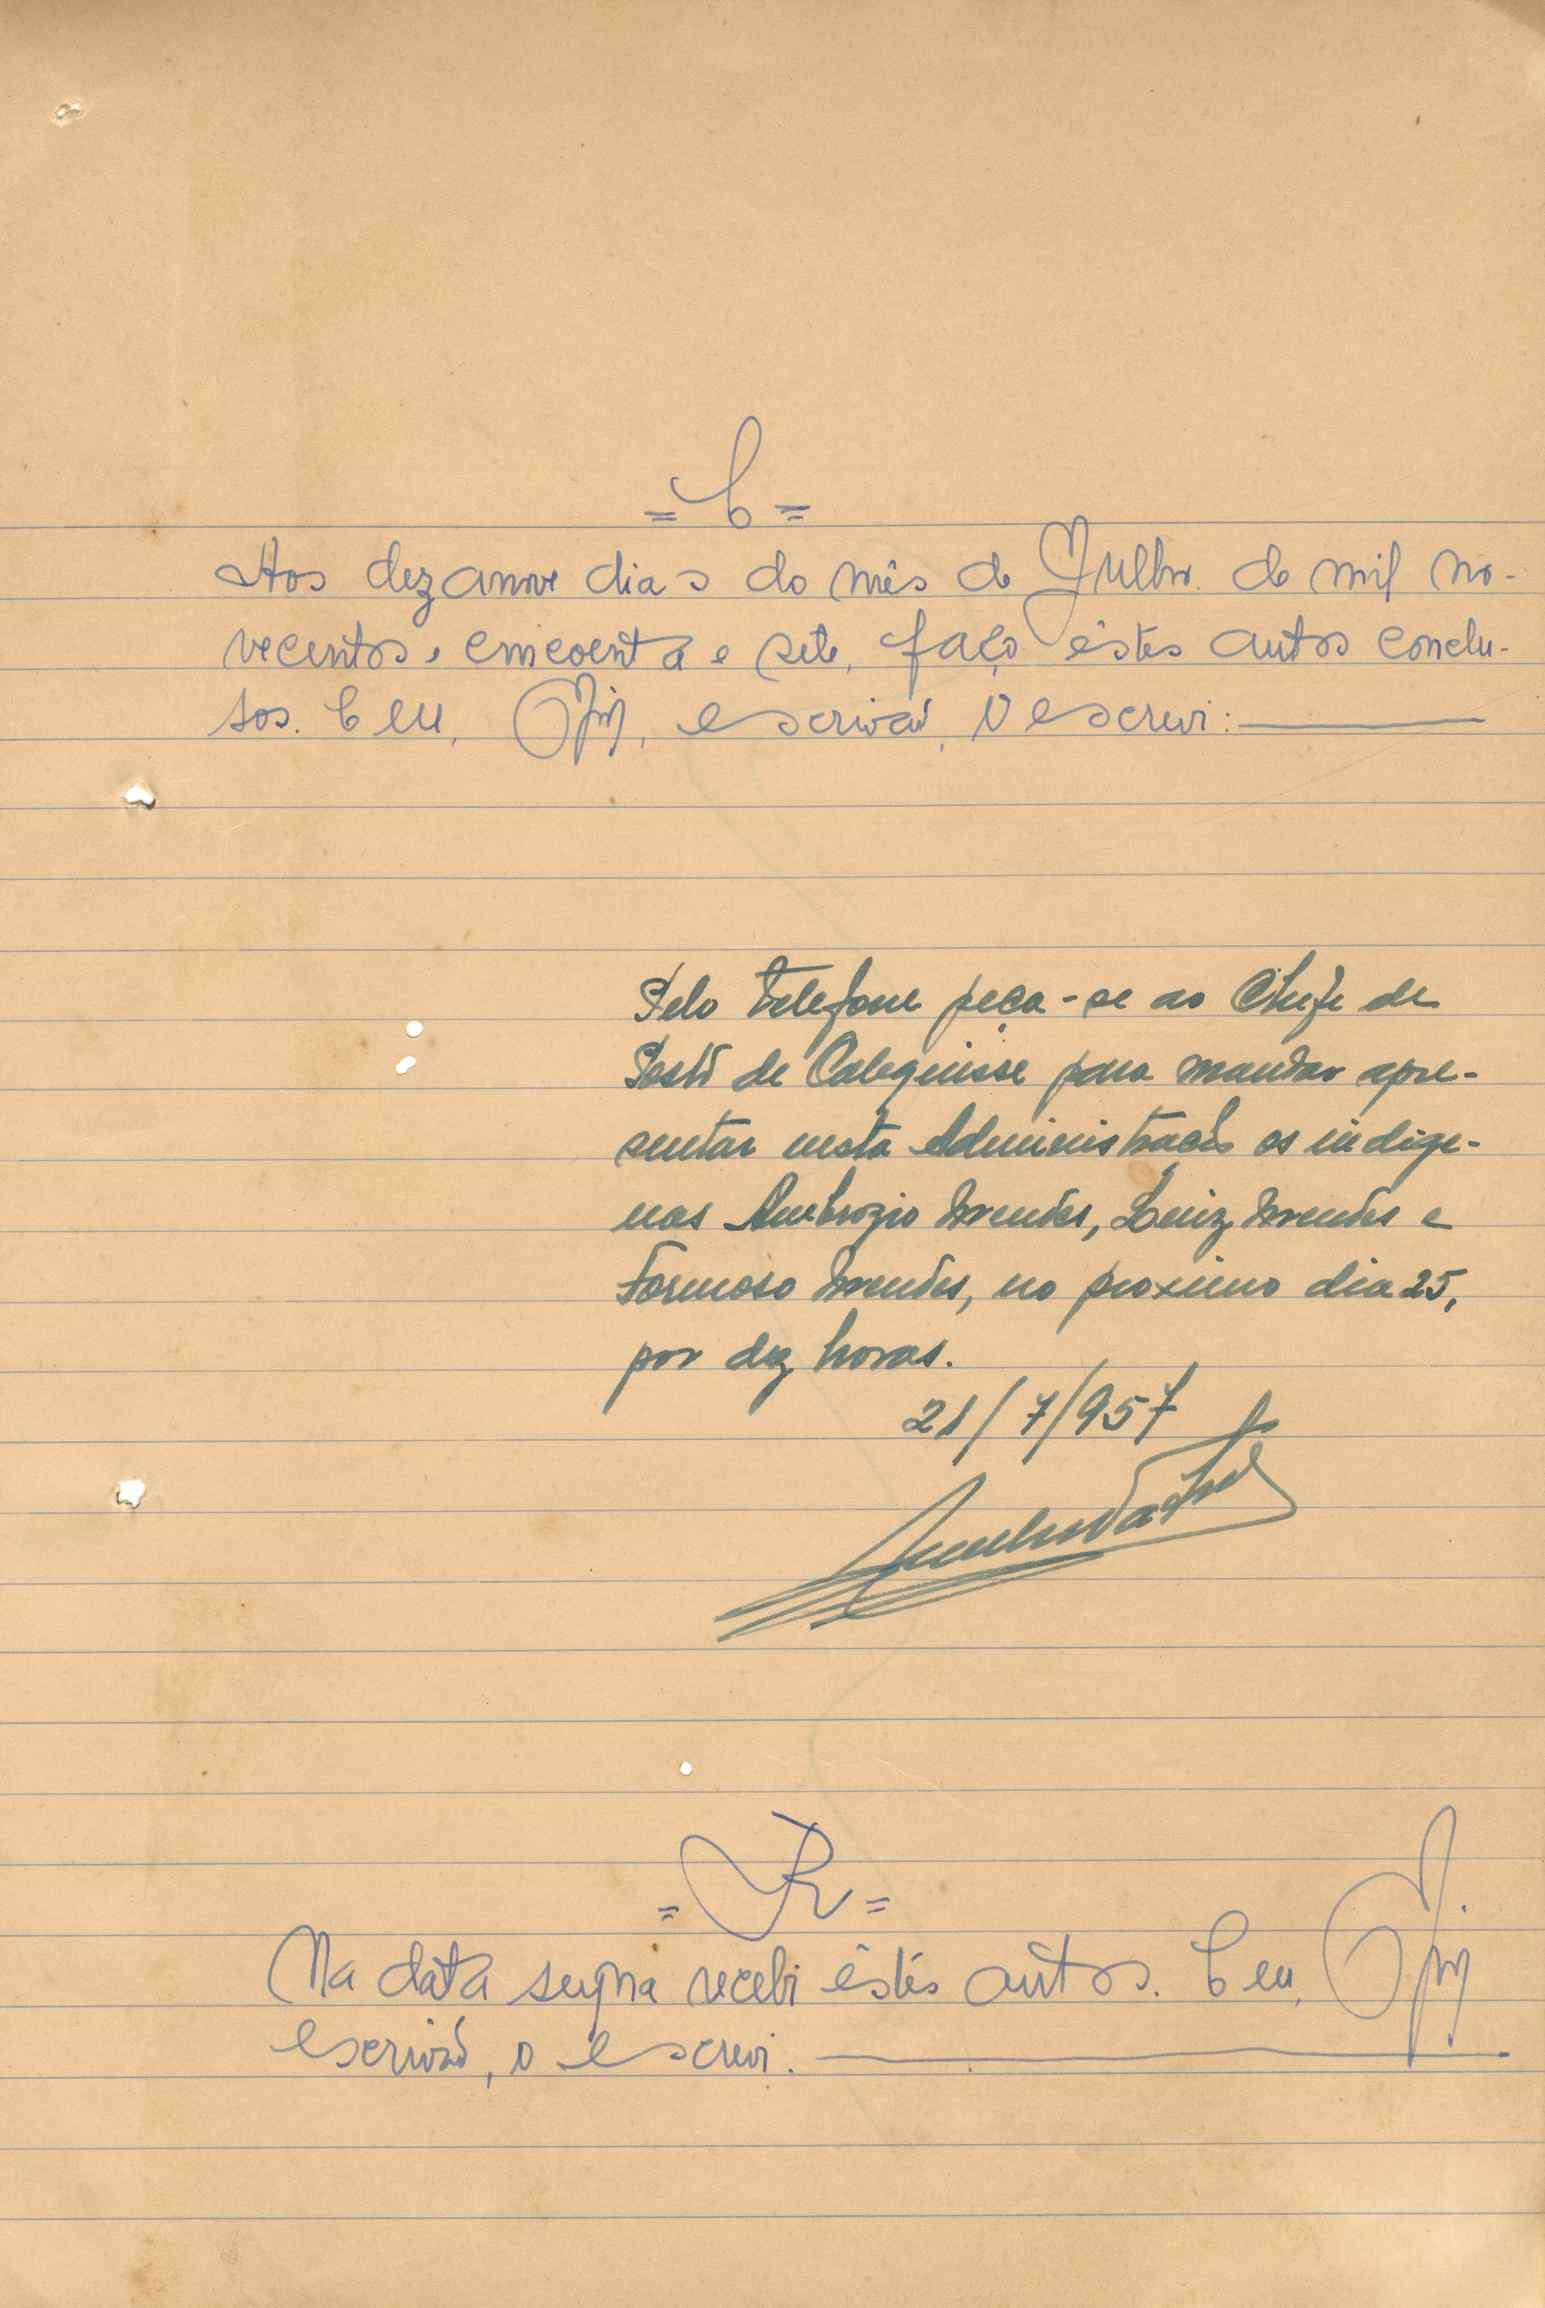 = C =
Aos dezanove dias do mês de Julho de mil no-
vecentos e cincoenta e sete, faço êstes autos conclu-
sos. E eu, escrivão, o escrevi:
Pelo telefone peça-se ao Chefe de
Posto de Calequisse para mandar apre-
sentar nesta Administração os indige-
nas Ambrozio Mendes, Luiz Mendes e
Formoso Mendes, no proximo dia 25,
por dez horas.
21/7/957
= R =
Na data supra recebi êstes autos. E eu,
escrivão, o escrevi.